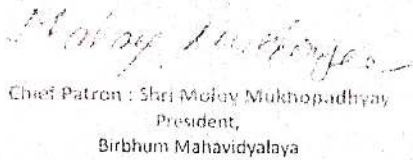 Malay Mukherjee
Chief Patron : Shri Moloy Mukhopadhyay
President,
Birbhum Mahavidyalaya